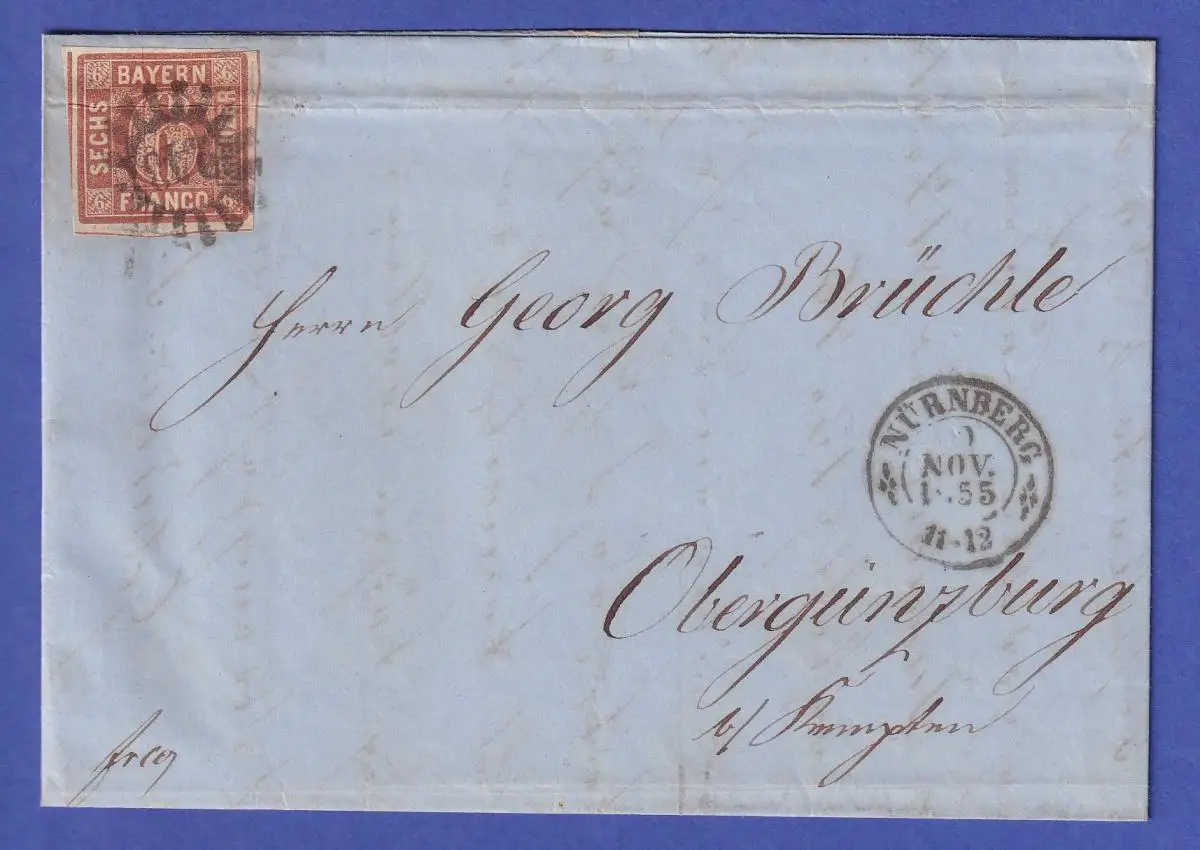 6 BAYERN 6
SECHS
KREUZER
6 FRANCO 6
Herrn Georg Brüchle
NÜRNBERG
NOV.
1855
11-12
Obergünzburg
b/ Kempten
frco